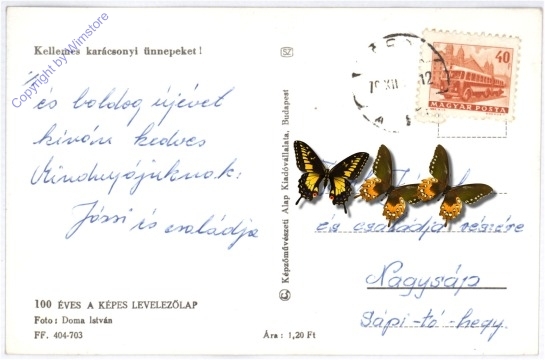 Kellemes karácsonyi ünnepeket!
és boldog újévet
kíván kedves
Mindnyájuknak:
Józsi és családja
100 ÉVES A KÉPES LEVELEZŐLAP
Foto: Doma István
FF. 404-703
Ára: 1,20 Ft
Képzőművészeti Alap Kiadóvállalata, Budapest
SZ
40
MAGYAR POSTA
XII
12
és családja részére
Nagysáp
Sápi-tó-hegy.
Copyright by Wimstore